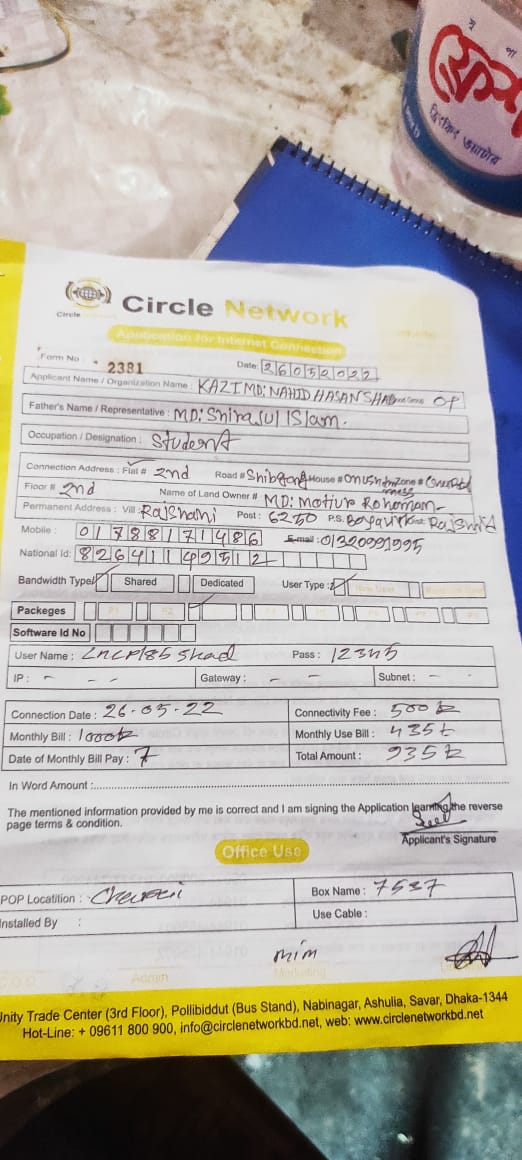 সু পা
ফ্রেশ
ড্রিংকিং ওয়াটার
Circle
Circle Network
Application for Internet Connection
Form No 2381 Date: 26052022
Applicant Name / Organization Name: KAZI MD: NAHID HASAN SHAD Blood Group O+
Father's Name / Representative: MD: Shirasul ISlam.
Occupation / Designation: Student
Connection Address: Flat # 2nd Road # Shibgong House # Zone #
Floor # 2nd Name of Land Owner # MD: Motiur Rohoman
Permanent Address: Vill: Rajshahi Post: 6250 P.S: Dist: Rajshahi
Mobile: 01788171486 E-mail: 01320991995
National Id: 82641149512
Bandwidth Type Shared Dedicated User Type: New User
Packeges P1 P2 P4 P5 P6 P7 P8
Software Id No
User Name: Shad Pass: 12345
IP: - - - Gateway: - - Subnet: -
Connection Date: 26-05-22 Connectivity Fee: 500 tk
Monthly Bill: 1000tk Monthly Use Bill: 435t
Date of Monthly Bill Pay: 7 Total Amount: 935 tk
In Word Amount:
The mentioned information provided by me is correct and I am signing the Application learning the reverse
page terms & condition.
Applicant's Signature
Office Use
POP Locatition: Box Name: 7537
Installed By : Use Cable:
mim
Admin Marketing
Unity Trade Center (3rd Floor), Pollibiddut (Bus Stand), Nabinagar, Ashulia, Savar, Dhaka-1344
Hot-Line: + 09611 800 900, info@circlenetworkbd.net, web: www.circlenetworkbd.net